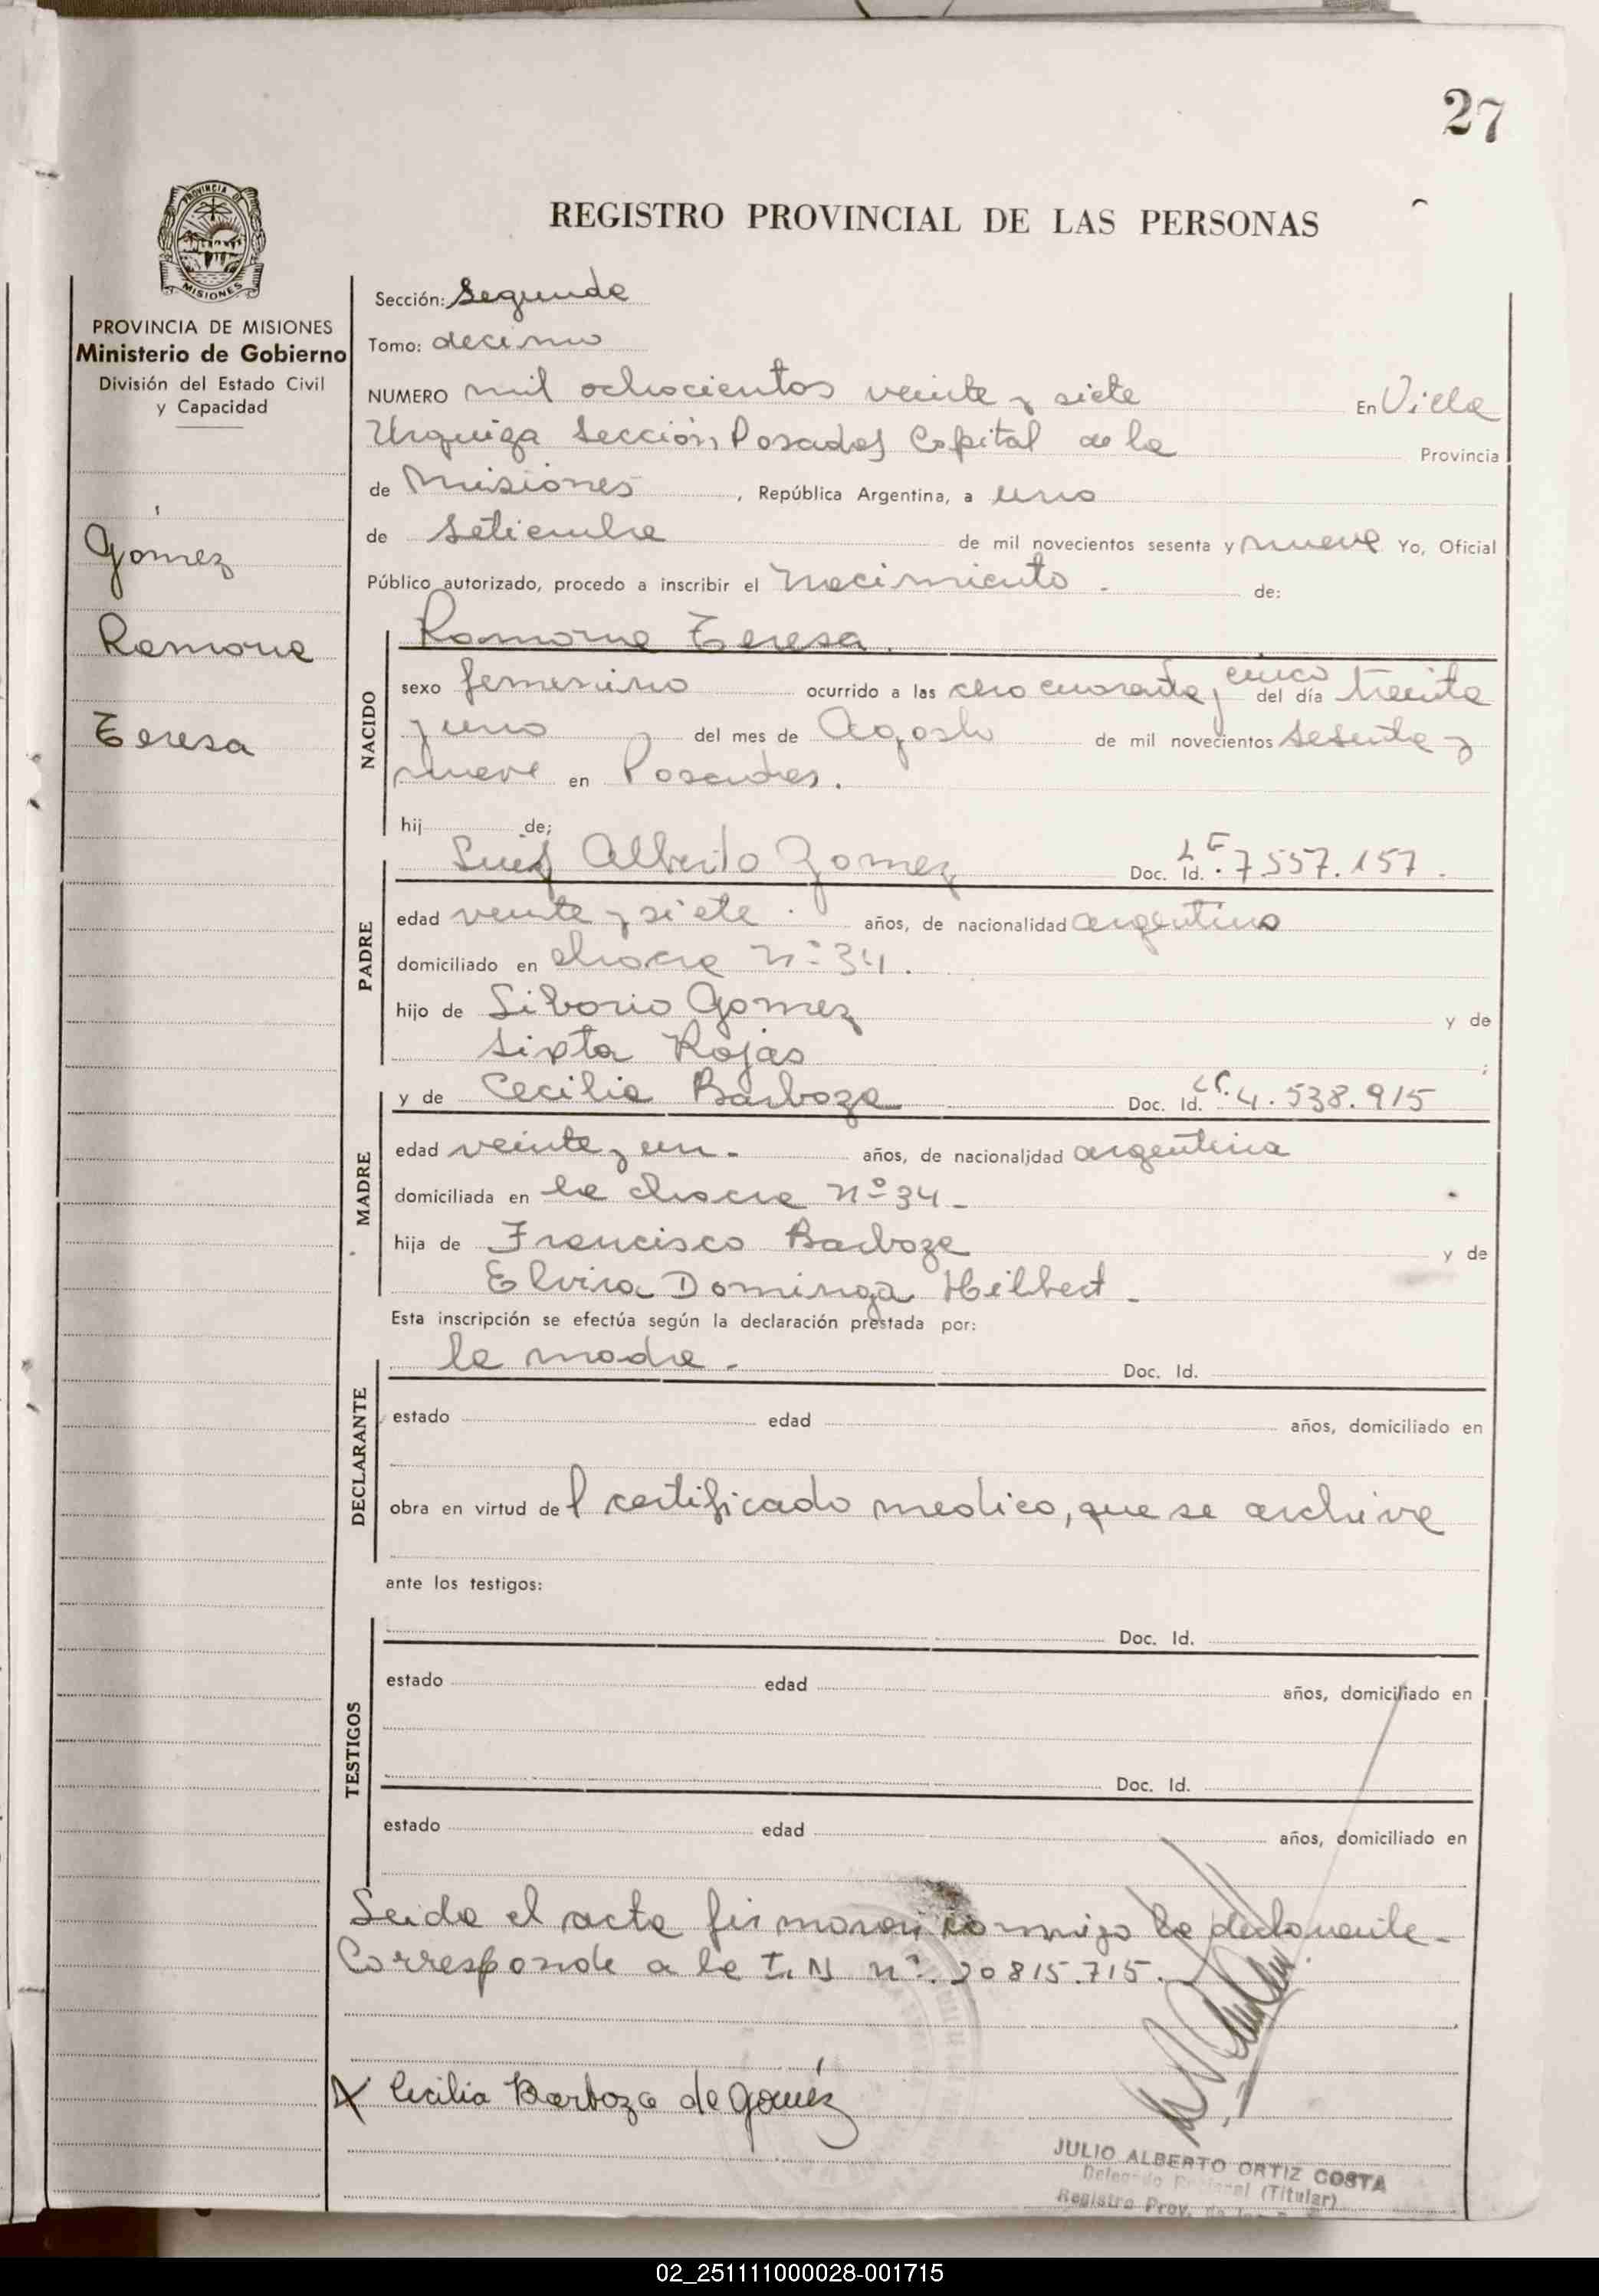 27
PROVINCIA DE
MISIONES
REGISTRO PROVINCIAL DE LAS PERSONAS
PROVINCIA DE MISIONES
Ministerio de Gobierno
División del Estado Civil
y Capacidad
Gómez
Ramona
Teresa
Sección: Segunda
Tomo: decimo
NUMERO mil ochocientos veinte y siete En Villa
Urquiza Sección Posadas Capital de la Provincia
de Misiones, República Argentina, a uno
de Setiembre de mil novecientos sesenta y nueve Yo, Oficial
Público autorizado, procedo a inscribir el nacimiento. de:
NACIDO
Ramona Teresa.
sexo femenino ocurrido a las cero cuarenta y cinco del día treinta
y uno del mes de Agosto de mil novecientos sesenta y
nueve en Posadas.
hij de;
PADRE
Luis Alberto Gomez Doc. Id. LE. 7.557.157.
edad veinte y siete. años, de nacionalidad argentino
domiciliado en chacra nº 34.
hijo de Liborio Gomez y de
Sixta Rojas ;
MADRE
y de Cecilia Barboza Doc. Id. LC. 4.538.915
edad veinte y un. años, de nacionalidad argentina
domiciliada en la chacra nº 34 -
hija de Francisco Barboza y de
Elvira Dominga Hilbert.
Esta inscripción se efectúa según la declaración prestada por:
DECLARANTE
la madre. Doc. Id.
estado edad años, domiciliado en
obra en virtud del certificado medico, que se archiva
ante los testigos:
TESTIGOS
Doc. Id.
estado edad años, domiciliado en
Doc. Id.
estado edad años, domiciliado en
Leida el acta firmaron conmigo la declarante -
Corresponde a la I.N nº. 20815.715.
X Cecilia Barboza de Goméz
JULIO ALBERTO ORTIZ COSTA
(Titular)
Registro Prov.
02_251111000028-001715